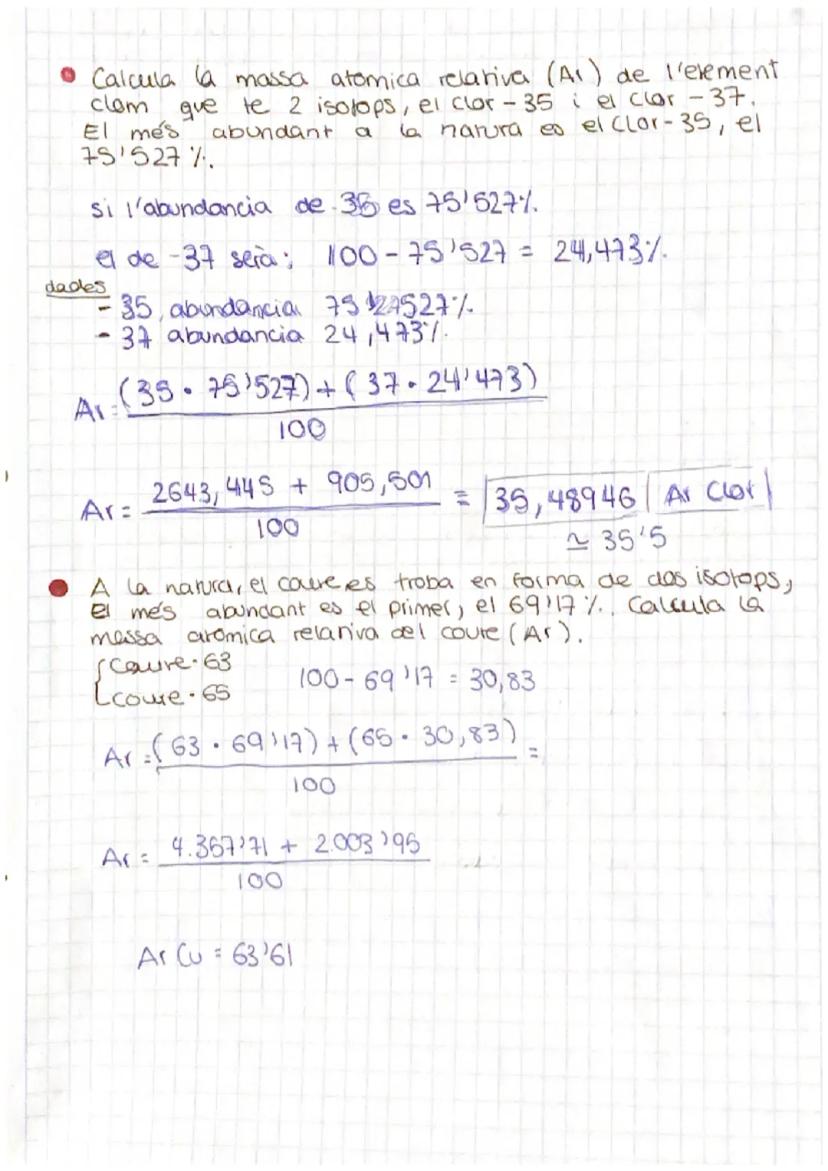 Calcula la massa atomica relativa (Ar) de l'element
clom que te 2 isotops, el clor-35 i el clor-37.
El més abundant a la natura es el clor-35, el
75'527%.
si l'abundancia de -35 es 75'527%.
el de -37 serà: 100-75'527 = 24,473%.
dades
- 35, abundancia 75 527%.
- 37 abundancia 24,473%.
Ar = (35 · 75'527) + (37 · 24'473)
100
Ar = 2643,445 + 905,501 = 35,48946 Ar Clor
100
≃ 35'5
A la natura, el coure es troba en forma de dos isotops,
el més abundant es el primer, el 69'17%. Calcula la
massa atomica relativa del coure (Ar).
{ Coure-63
coure-65 100-69'17 = 30,83
Ar = (63 · 69'17) + (65 · 30,83) =
100
Ar = 4.357'71 + 2.003'95
100
Ar Cu = 63'61